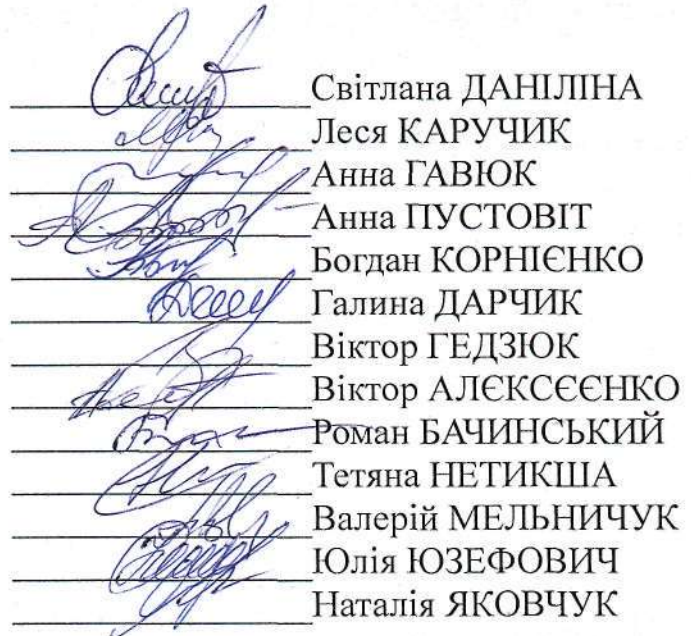 Світлана ДАНІЛІНА
Леся КАРУЧИК
Анна ГАВЮК
Анна ПУСТОВІТ
Богдан КОРНІЄНКО
Галина ДАРЧИК
Віктор ГЕДЗЮК
Віктор АЛЄКСЄЄНКО
Роман БАЧИНСЬКИЙ
Тетяна НЕТИКША
Валерій МЕЛЬНИЧУК
Юлія ЮЗЕФОВИЧ
Наталія ЯКОВЧУК